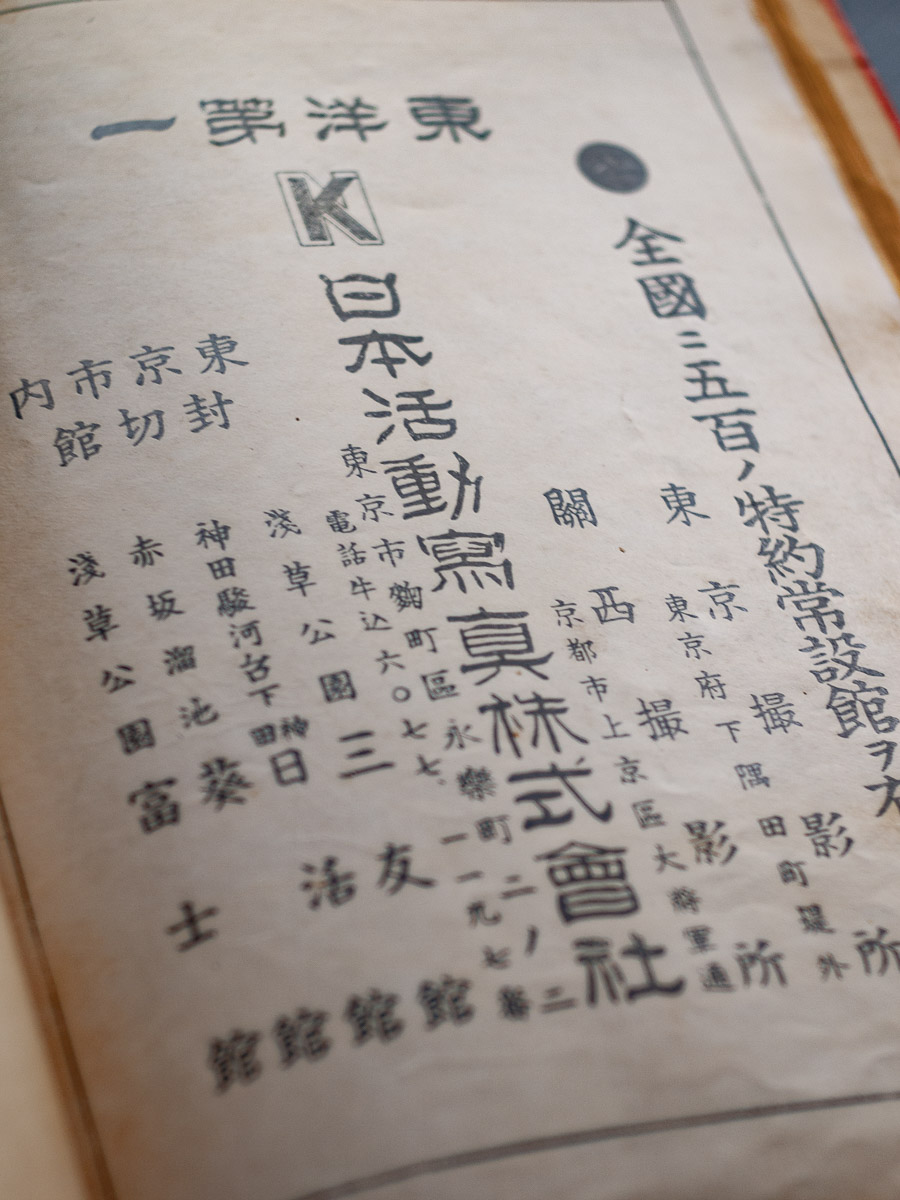 東洋第一
K
全國ニ五百ノ特約常設館ヲ
東京撮影所
東京府下隅田町堤外
關西撮影所
京都市上京區大將軍通
日本活動寫真株式會社
東京市麴町區永樂町二ノ二
電話牛込六〇七七、一一九七番
東京市内
封切館
淺草公園 三友館
神田駿河台下 神田日活館
赤坂溜池 葵館
淺草公園 富士館